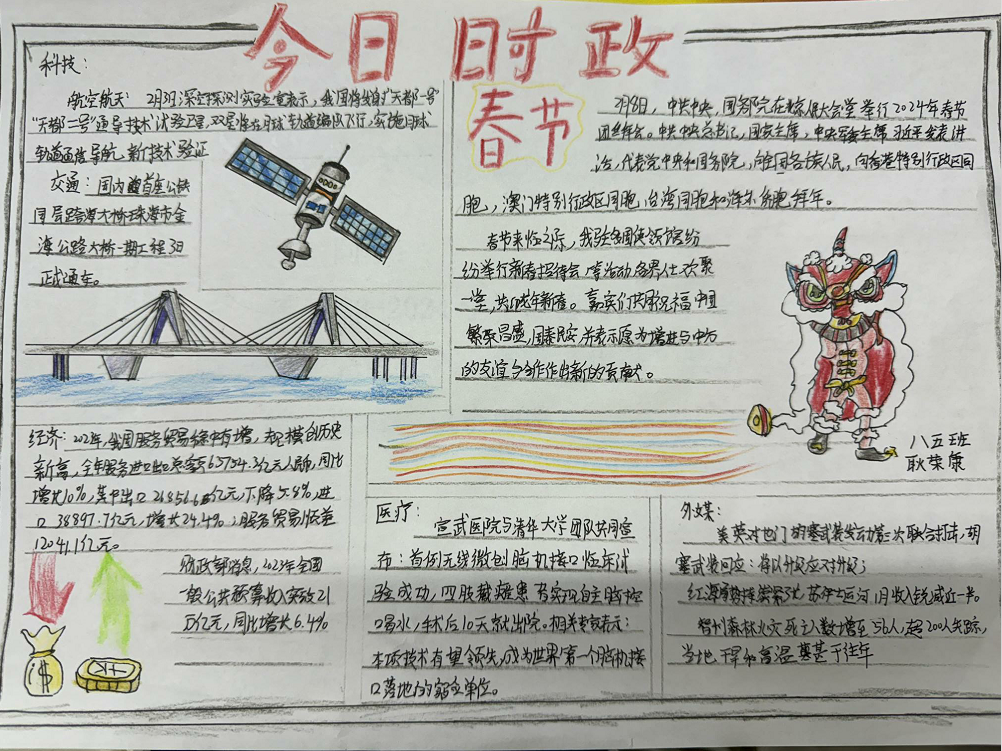 今日时政
科技：
航空航天：2月3日深空探测实验室表示，我国将发射"天都一号"
"天都二号"通导技术试验卫星，双星将在月球轨道编队飞行，实施月球
轨道通信导航新技术验证
交通：国内首座公铁
同层跨海大桥珠海市金
海公路大桥一期工程3日
正式通车。
春节
2月8日，中共中央，国务院在人民大会堂举行2024年春节
团拜会。中共中央总书记，国家主席，中央军委主席习近平发表讲
话，代表党中央和国务院，向全国各族人民，向香港特别行政区同
胞，澳门特别行政区同胞，台湾同胞和海外侨胞拜年。
春节来临之际，我驻各国使领馆纷
纷举行新春招待会，等活动，各界人士欢聚
一堂，共贺龙年新春。嘉宾们共同祝福中国
繁荣昌盛，国泰民安，并表示愿为增进与中方
的友谊与合作作出新的贡献。
八五班
耿荣康
经济：2023年，我国服务贸易稳中有增，规模创历史
新高，全年服务进出口总额65754.3亿元人民币，同比
增长10%，其中出口26856.6亿元，下降5.8%，进
口38897.7亿元，增长24.4%；服务贸易逆差
12041.1亿元。
财政部消息，2023年全国
一般公共预算收入突破21
万亿元，同比增长6.4%
医疗：
宣武医院与清华大学团队共同宣
布：首例无线微创脑机接口临床试
验成功，四肢截瘫患者实现自主脑控
喝水，手术后10天就出院。相关专家表示：
本项技术有望领先，成为世界第一个脑机接
口落地的单位。
外媒：
美英对也门胡塞武装发动第三次联合打击，胡
塞武装回应：将以升级应对升级；
红海局势持续紧张，苏伊士运河1月收入锐减近一半。
智利森林火灾死亡人数增至56人，超200人失踪，
当地干旱和高温甚于往年